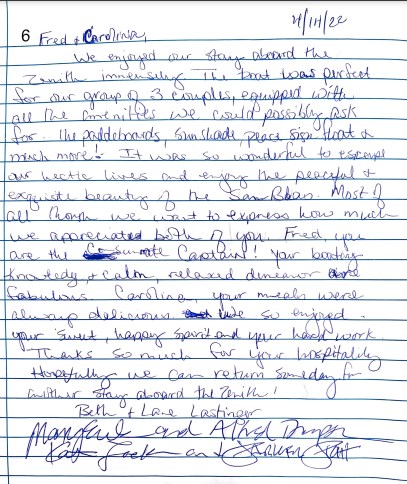 4/14/22
6 Fred & Carolina,
We enjoyed our stay aboard the
Zenith immensely. The boat was perfect
for our group of 3 couples, equipped with
all the amenities we could possibly ask
for. The paddleboards, sunshade, peace sign float &
much more! It was so wonderful to escape
our hectic lives and enjoy the peaceful &
exquisite beauty of the San Blas. Most of
all though we want to express how much
we appreciated both of you. Fred, you
are the Captain! Your boating
knowledg, + calm, relaxed demeanor are
fabulous. Carolina, your meals were
always delicious. We so enjoyed
your sweet, happy spirit and your hard work
Thanks so much for your hospitality
Hopefully we can return someday for
another stay aboard the Zenith!
Beth + Lane Lastinger
and
and